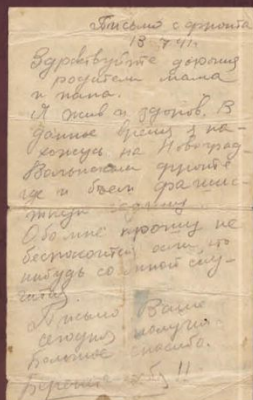 Письмо с фронта
13 7 41г.
Здравствуйте дорогие
родители мама
и папа.
Я жив и здоров, В
данное время я на-
хожусь на Новоград
Волынском фронте
где и бьем фашис-
тскую
Обо мне прошу не
беспокоится если что
нибудь со мной слу-
чится.
Письмо Ваше
сегодня получил
Большое спасибо.
Берегите себя!!